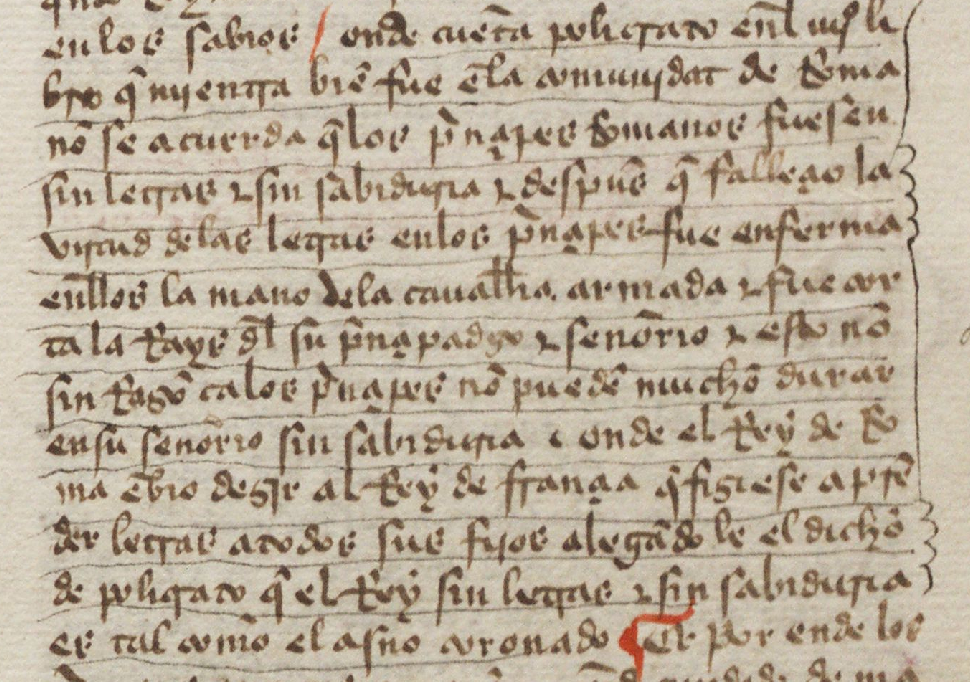 en los sabios / onde cuēta poligrato enl iiijº li
bro q̄ mientra biē fue ēla comunidat de Roma
nō se acuerda q̄ los p̄nçipes Romanos fuesen
sin letras ⁊ sin sabiduria ⁊ despues q̄ falleçio la
virtud de las letras en los p̄nçipes fue enferma
enllos la mano dela cauallia armada ⁊ fue cor
ta la Rays dl su p̄nçipadgo ⁊ senōrio ⁊ esto nō
sin Razō ca los p̄nçipes nō puedē muchō durar
en su senōrio sin sabiduria ⁊ onde el Rey de Ro
ma ēbio dezir al Rey de françia q̄ fiziese apr̄e
der letras a todos sus fijos alegādo le el dichō
de poligrato q̄ el Rey sin letras ⁊ sin sabiduria
es tal com̄o el asno coronado Et por ende los